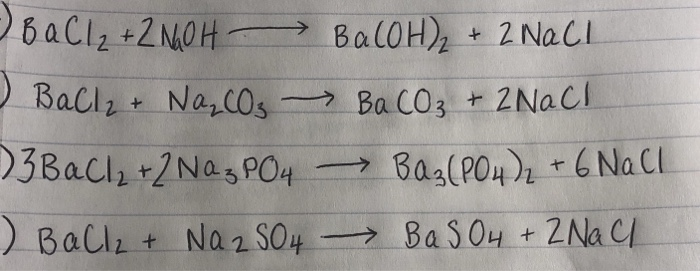 ) BaCl₂ + 2 NaOH ⟶ Ba(OH)₂ + 2 NaCl
) BaCl₂ + Na₂CO₃ ⟶ BaCO₃ + 2NaCl
) 3BaCl₂ + 2Na₃PO₄ ⟶ Ba₃(PO₄)₂ + 6 NaCl
) BaCl₂ + Na₂SO₄ ⟶ BaSO₄ + 2NaCl